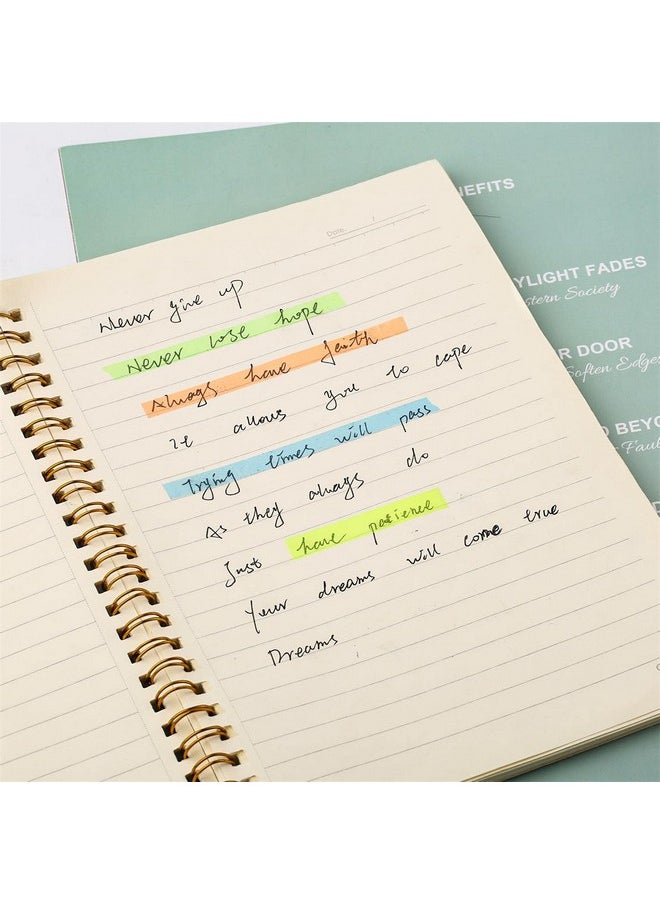 Date. /
Never give up
Never lose hope
Always have faith
It allows you to cope
Trying times will pass
As they always do
Just have patience
Your dreams will come true
Dreams
NEFITS
YLIGHT FADES
stern Society
R DOOR
Soften Edges
D BEYO
Faul